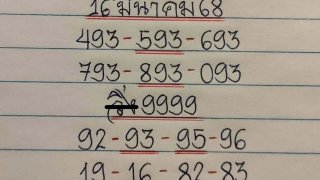 16 มีนาคม 68
493-593-693
793-893-093
วิ่ง 9999
92-93-95-96
19-16-82-83